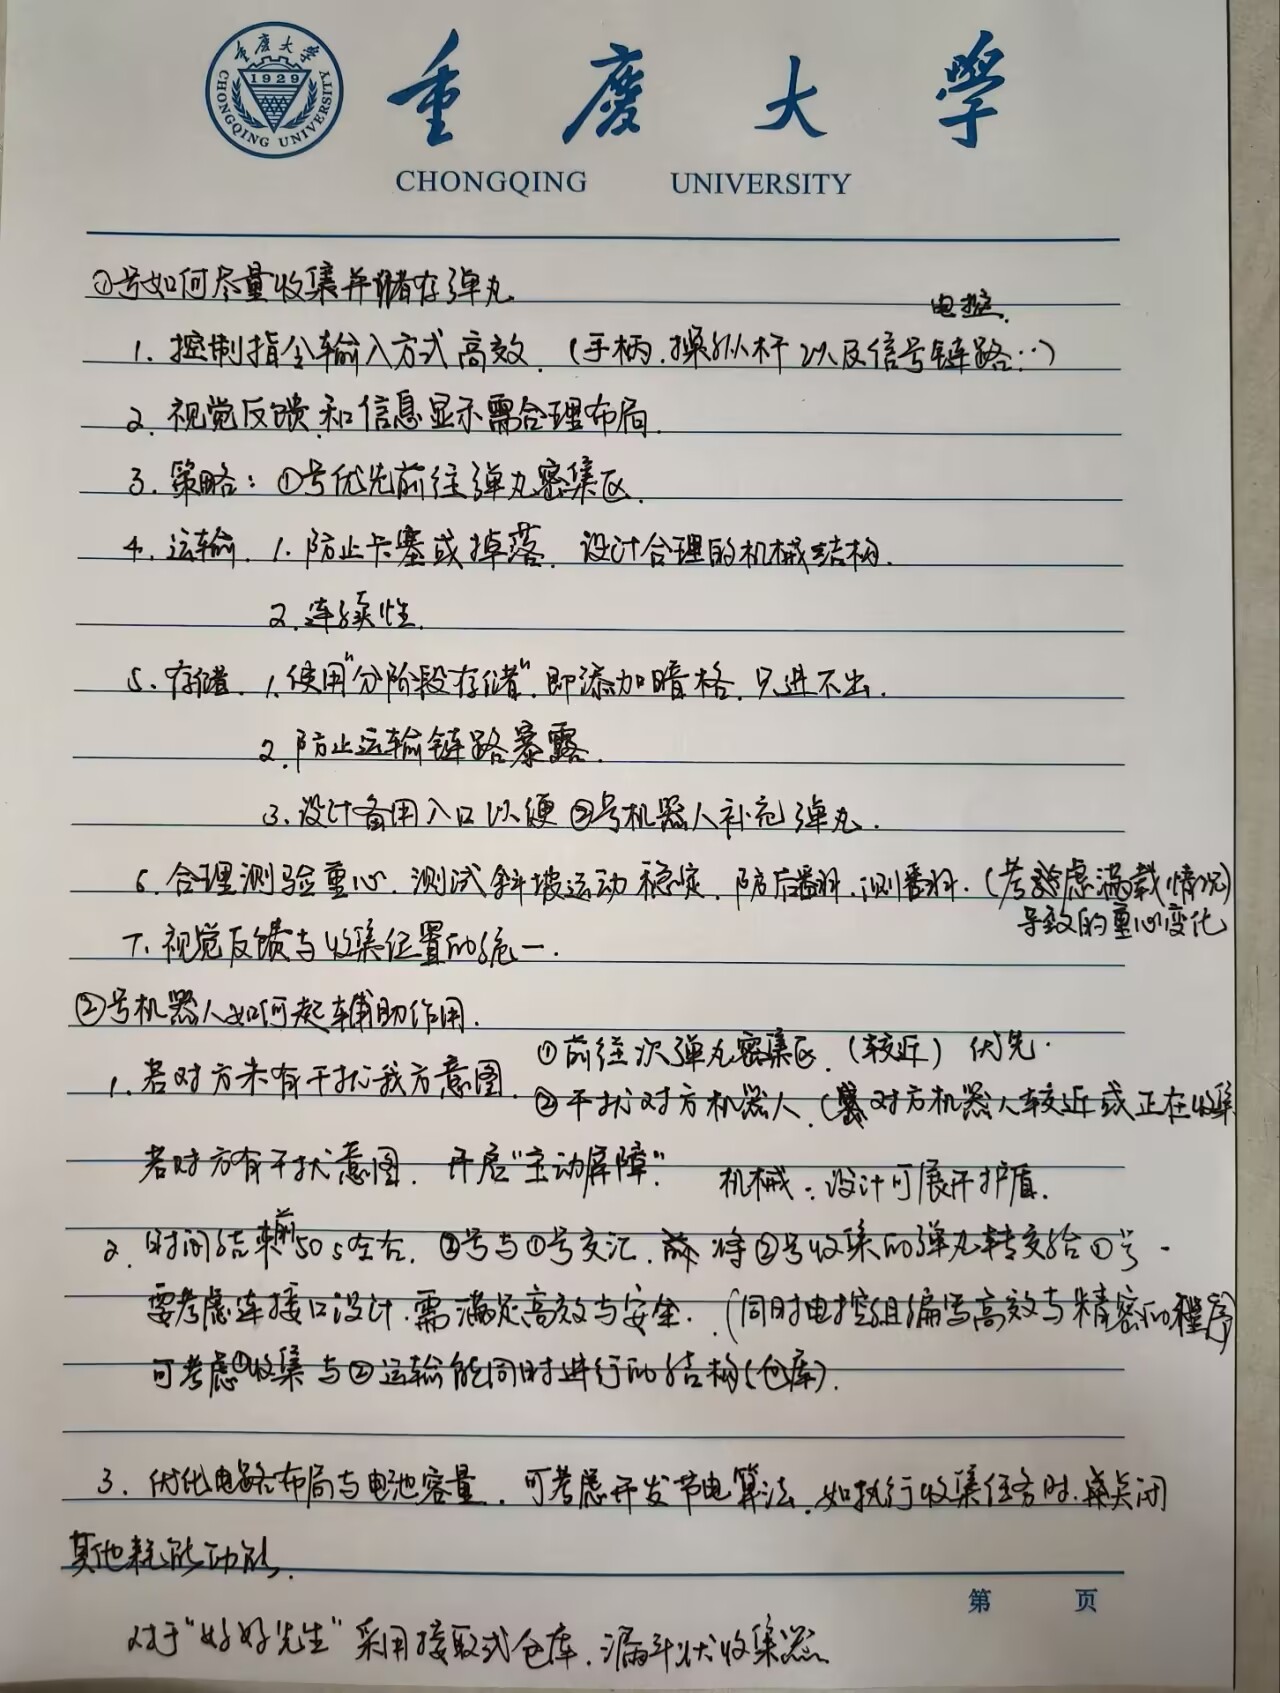 重庆大学
CHONGQING UNIVERSITY
1929
重慶大學
CHONGQING UNIVERSITY
①号如何尽量收集并储存弹丸
电控.
1. 控制指令输入方式高效. (手柄.操纵杆以及信号链路…)
2. 视觉反馈和信息显示需合理布局.
3. 策略: ①号优先前往弹丸密集区.
4. 运输. 1. 防止卡塞或掉落. 设计合理的机械结构.
2. 连续性.
5. 存储. 1. 使用"分阶段存储". 即添加暗格. 只进不出.
2. 防止运输链路暴露.
3. 设计备用入口以便②号机器人补充弹丸.
6. 合理测验重心. 测试斜坡运动稳定. 防后翻. 侧翻. (考虑满载情况)
导致的重心变化
7. 视觉反馈与收集位置的统一.
②号机器人如何起辅助作用.
①前往次弹丸密集区. (较近) 优先.
1. 若对方未有干扰我方意图.
②干扰对方机器人. (对方机器人较近或正在收集
若对方有干扰意图. 开启"主动屏障". 机械: 设计可展开护盾.
2. 时间结束前50s左右. ②号与①号交汇. 将②号收集的弹丸转交给①号.
要考虑连接口设计. 需满足高效与安全. (同时电控组编写高效与精密的程序)
可考虑①收集与②运输能同时进行的结构(仓库).
3. 优化电路布局与电池容量. 可考虑开发节电算法. 如执行收集任务时. 关闭
其他耗能功能.
第 页
对于"好好先生"采用接取式仓库. 漏斗状收集器